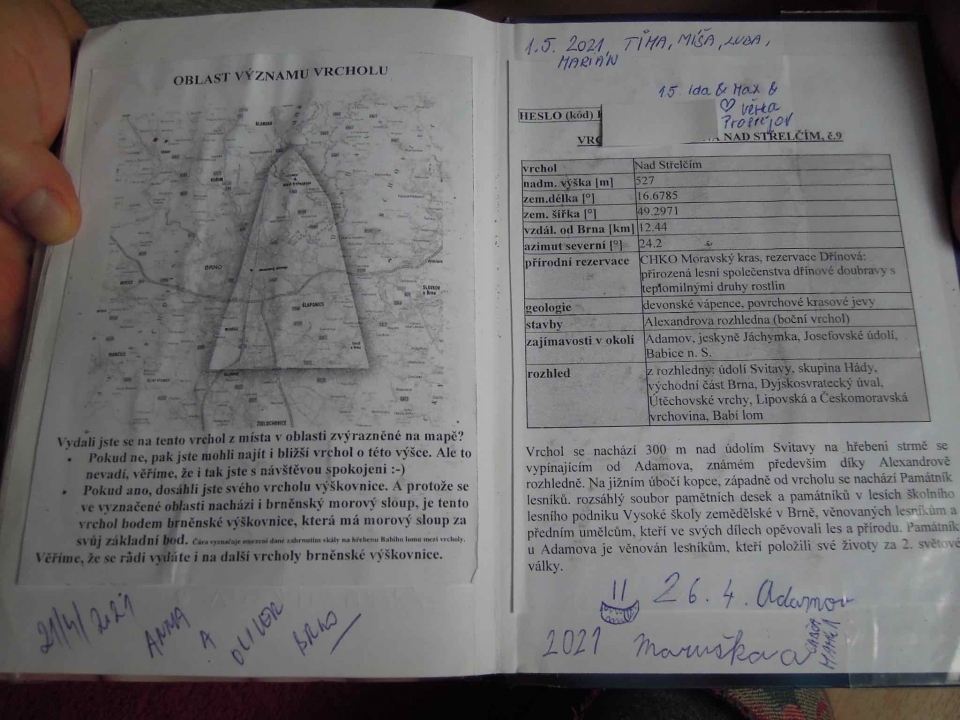 OBLAST VÝZNAMU VRCHOLU
BLANSKO
BRNO
ŠLAPANICE
SLAVKOV
u Brna
ŽIDLOCHOVICE
Vydali jste se na tento vrchol z místa v oblasti zvýrazněné na mapě?
• Pokud ne, pak jste mohli najít i bližší vrchol o této výšce. Ale to
nevadí, věříme, že i tak jste s návštěvou spokojeni :-)
• Pokud ano, dosáhli jste svého vrcholu výškovnice. A protože se
ve vyznačené oblasti nachází i brněnský morový sloup, je tento
vrchol bodem brněnské výškovnice, která má morový sloup za
svůj základní bod. Čára vyznačuje omezení dané zahrnutím skály na hřebenu Babího lomu mezi vrcholy.
Věříme, že se rádi vydáte i na další vrcholy brněnské výškovnice.
21/4/2021
ANNA
A
OLIVER
BRNO
1.5. 2021, TÍMA, MÍŠA, LUBA,
MARIÁN
1.5. Ida & Max &
♡ Věrka
Prostějov
HESLO (kód)
NAD STŘELČÍM, č.9
vrchol Nad Střelčím
nadm. výška [m] 527
zem.délka [°] 16.6785
zem. šířka [°] 49.2971
vzdál. od Brna [km] 12.44
azimut severní [°] 24.2
přírodní rezervace CHKO Moravský kras, rezervace Dřínová:
přirozená lesní společenstva dřínové doubravy s
teplomilnými druhy rostlin
geologie devonské vápence, povrchové krasové jevy
stavby Alexandrova rozhledna (boční vrchol)
zajímavosti v okolí Adamov, jeskyně Jáchymka, Josefovské údolí,
Babice n. S.
rozhled z rozhledny: údolí Svitavy, skupina Hády,
východní část Brna, Dyjskosvratecký úval,
Útěchovské vrchy, Lipovská a Českomoravská
vrchovina, Babí lom
Vrchol se nachází 300 m nad údolím Svitavy na hřebeni strmě se
vypínajícím od Adamova, známém především díky Alexandrově
rozhledně. Na jižním úbočí kopce, západně od vrcholu se nachází Památník
lesníků, rozsáhlý soubor pamětních desek a památníků v lesích školního
lesního podniku Vysoké školy zemědělské v Brně, věnovaných lesníkům a
předním umělcům, kteří ve svých dílech opěvovali les a přírodu. Památník
u Adamova je věnován lesníkům, kteří položili své životy za 2. světové
války.
26. 4. Adamov
2021 Maruška a